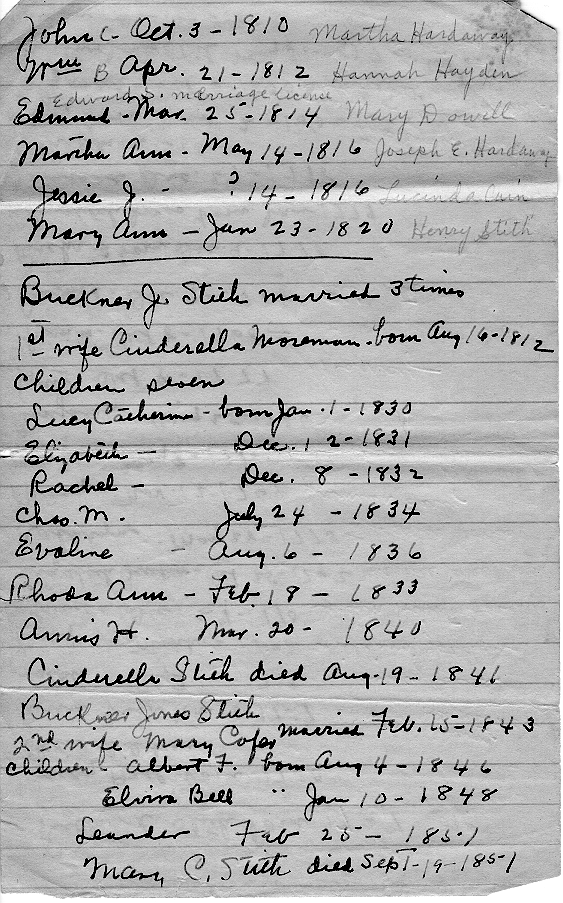 John C- Oct. 3 - 1810 Martha Hardaway
Wm B Apr. 21 - 1812 Hannah Hayden
Edward S. marriage licence
Edmund - Mar. 25 - 1814 Mary Dowell
Martha Ann - May 14 - 1816 Joseph E. Hardaway
Jessie J. - ? 14 - 1816 Lucinda Cain
Mary Ann - Jan 23 - 1820 Henry Stith
Buckner J. Stith married 3 times
1st wife Cinderella Moreman - born Aug 16 - 1812
Children seven
Lucy Catherine - born Jan. 1 - 1830
Elizabeth - Dec. 12 - 1831
Rachel - Dec. 8 - 1832
Chas. M. July 24 - 1834
Evaline - Aug. 6 - 1836
Rhoda Ann - Feb. 18 - 1833
Annis H. Mar. 20 - 1840
Cinderella Stith died Aug - 19 - 1841
Buckner Jones Stith
2nd wife Mary Cofer married Feb. 15 - 1843
Children - Albert F. born Aug 4 - 1846
Elvira Bell " Jan 10 - 1848
Leander Feb 25 - 1851
Mary C. Stith died Sept - 19 - 1851